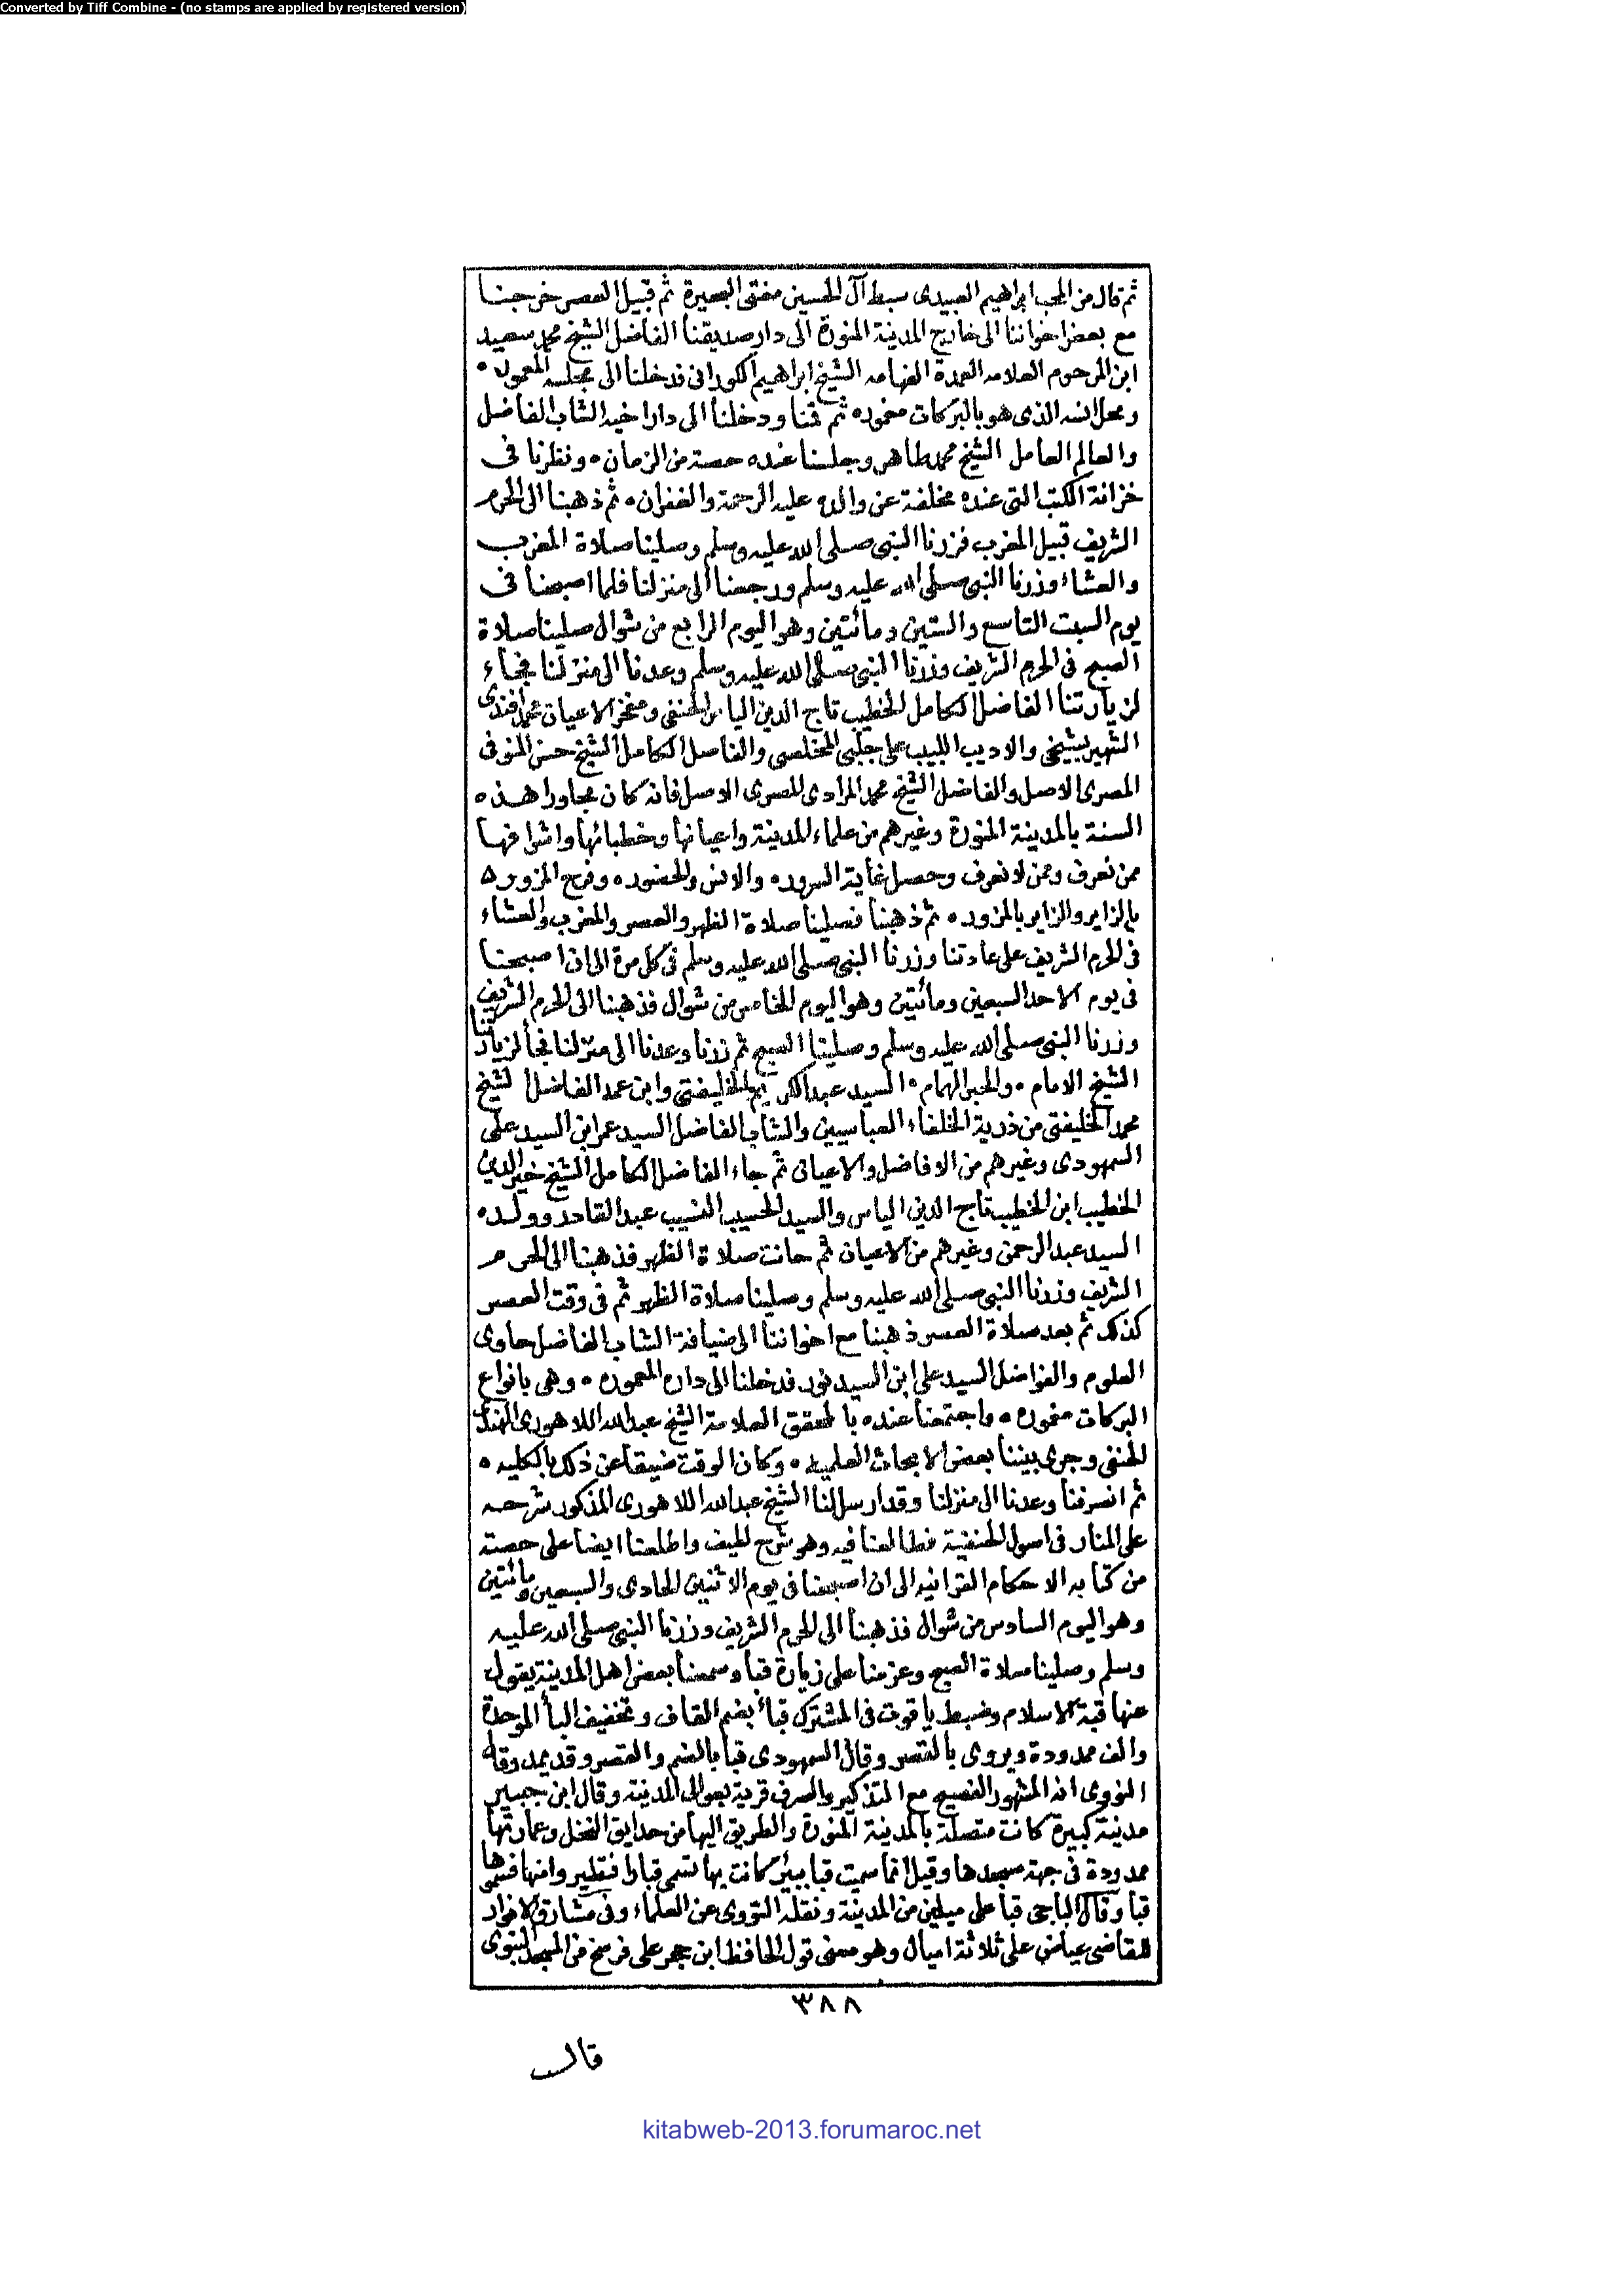 Converted by Tiff Combine - (no stamps are applied by registered version)
ثم قال من المحب ابراهيم العبيدى سبط آل الحسين مفتى البصيرة ثم قبيل العصر خرجنا
مع بعض اخواننا الى خارج المدينة المنورة الى دار صديقنا الفاضل الشيخ محمد سعيد
ابن المرحوم العلامه العمدة الفهامه الشيخ ابراهيم الكورانى فدخلنا الى مجلسه المعمور
ومحل انسه الذى هو بالبركات مغموره ثم قمنا ودخلنا الى دار اخيه الشاب الفاضل
والعالم العامل الشيخ محمد طاهر وجلسنا عنده حصة من الزمان ونظرنا فى
خزانة الكتب التى عنده مخلفة عن والده عليه الرحمة والغفران ثم ذهبنا الى الحرم
الشريف قبيل المغرب فزرنا النبى صلى الله عليه وسلم وصلينا صلاة المغرب
والعشاء وزرنا النبى صلى الله عليه وسلم ورجعنا الى منزلنا فلما اصبحنا فى
يوم السبت التاسع والستين ومائتين وهو اليوم الرابع من شوال صلينا صلاة
الصبح فى الحرم الشريف وزرنا النبى صلى الله عليه وسلم وعدنا الى منزلنا فجاء
لزيارتنا الفاضل الكامل الخطيب تاج الدين الياس الحنفى ومفخر الاعيان محمد افندى
الشهير بشيخى والاديب اللبيب على جلبى المخلصى والفاضل الكامل الشيخ حسن المنوفى
المصرى الاصل والفاضل الشيخ محمد المرادى المصرى الاصل فانه كان مجاورا هذه
السنة بالمدينة المنورة وغيرهم من علماء المدينة واعيانها وخطبائها واشرافها
ممن نعرف وممن لا نعرف وحصل غاية السرور والانس والحضور وفرح المزور
بالزاير والزاير بالمزور ثم ذهبنا فصلينا صلاة الظهر والعصر والمغرب والعشاء
فى الحرم الشريف على عادتنا وزرنا النبى صلى الله عليه وسلم فى كل مرة الى ان اصبحنا
فى يوم الاحد السبعين ومائتين وهو اليوم الخامس من شوال فذهبنا الى الحرم الشريف
وزرنا النبى صلى الله عليه وسلم وصلينا الصبح ثم زرنا وعدنا الى منزلنا فجأ لزيارتنا
الشيخ الامام والحبر الهمام السيد عبد الكريم الخليفتى وابن عمه الفاضل الشيخ
محمد الخليفتى من ذرية الخلفاء العباسيين والشاب الفاضل السيد عمر ابن السيد على
السمهودى وغيرهم من الافاضل والاعيان ثم جاء الفاضل الكامل الشيخ خير الدين
الخطيب ابن الخطيب تاج الدين الياس والسيد الحسيب النسيب عبد القادر وولده
السيد عبد الرحمن وغيرهم من الاعيان ثم حانت صلاة الظهر فذهبنا الى الحرم
الشريف وزرنا النبى صلى الله عليه وسلم وصلينا صلاة الظهر ثم فى وقت العصر
كذلك ثم بعد صلاة العصر ذهبنا مع اخواننا الى ضيافة الشاب الفاضل حاوى
العلوم والفواضل السيد على ابن السيد نور فدخلنا الى داره المعموره وهى بانواع
البركات مغموره واجتمعنا عنده بالمحقق العلامة الشيخ عبد الله اللاهورى الهندى
الحنفى وجرى بيننا بعض الابحاث العلميه وكان الوقت ضيقا عن ذلك بالكليه
ثم انصرفنا وعدنا الى منزلنا وقد ارسل لنا الشيخ عبد الله اللاهورى المذكور شرحه
على المنار فى اصول الحنفية فطالعنا فيه وهو شرح لطيف واطلعنا ايضا على حصة
من كتابه الاحكام القرانيه الى ان اصبحنا فى يوم الاثنين الحادى والسبعين ومائتين
وهو اليوم السادس من شوال فذهبنا الى الحرم الشريف وزرنا النبى صلى الله عليه
وسلم وصلينا صلاة الصبح وعزمنا على زيارة قبا وسمعنا بعض اهل المدينة يقول
عنها قبة الاسلام وضبط ياقوت فى المشترك قباء بضم القاف وتخفيف البأ الموحدة
والف ممدودة ويروى بالقصر وقال السمهودى قبا بالضم والقصر وقد يمد وقال
النووى انه المشهور الفصيح مع التذكير والصرف قرية بعوالى المدينة وقال ابن جبير
مدينة كبيرة كانت متصلة بالمدينة المنورة والطريق اليها من حدايق النخل وعمارتها
ممدودة فى جهة مسجدها وقيل انما سميت قبا ببئر كانت بها تسمى قبارا فتطير وامنها فسموها
قبا وقال الباجى قبا على ميلين من المدينة ونقله النووى عن العلماء وفى مشارق الانوار
للقاضى عياض على ثلاثة اميال وهو معنى قول الحافظ ابن حجر على فرسخ من المسجد النبوى
٣٨٨
قال
kitabweb-2013.forumaroc.net